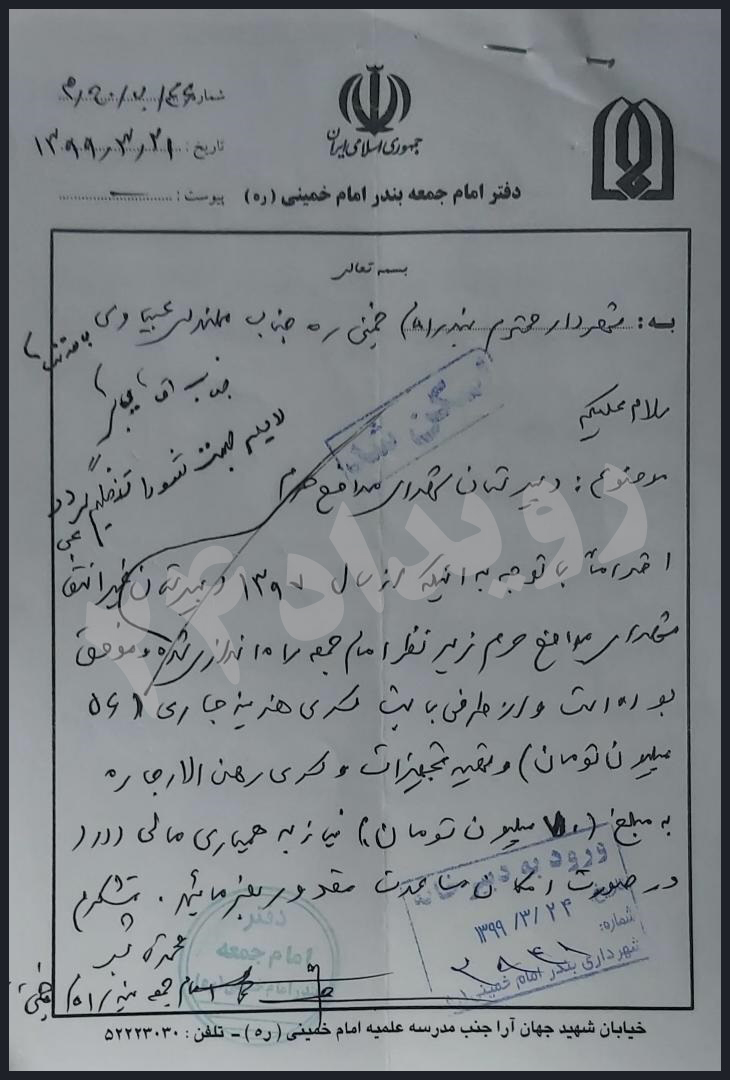 شماره: 
جمهوری اسلامی ایران
تاریخ: ۱۳۹۹٫۳٫۲۱
دفتر امام جمعه بندر امام خمینی (ره)
پیوست:
بسمه تعالی
به: شهردار محترم بندر امام خمینی ره جناب مهندس عبیاوی
سلام علیکم
جناب آقای
لایحه جهت شورا تنظیم گردد
اسکن شد
موضوع: دبیرستان شهدای مدافع حرم
احتراماً با توجه به اینکه از سال ۱۳۹۷ دبیرستان غیرانتفا
شهدای مدافع حرم زیر نظر امام جمعه راه اندازی شده و موفق
بوده است و از طرفی بابت کسری هزینه جاری (
میلیون تومان) و تهیه تجهیزات و کسری رهن الاجاره
به مبلغ (۷۰ میلیون تومان) نیاز به همیاری مالی دارد
در صورت امکان مساعدت مقدور بفرمائید. متشکرم
رویداد۲۴
ورود به دبیرخانه
تاریخ: ۱۳۹۹/۳/۲۴
شماره:
شهرداری بندر امام خمینی (ره)
دفتر
امام جمعه
بندر امام خمینی
امام جمعه بندر امام خمینی
خیابان شهید جهان آرا جنب مدرسه علمیه امام خمینی (ره) – تلفن: ۵۲۲۲۳۰۳۰